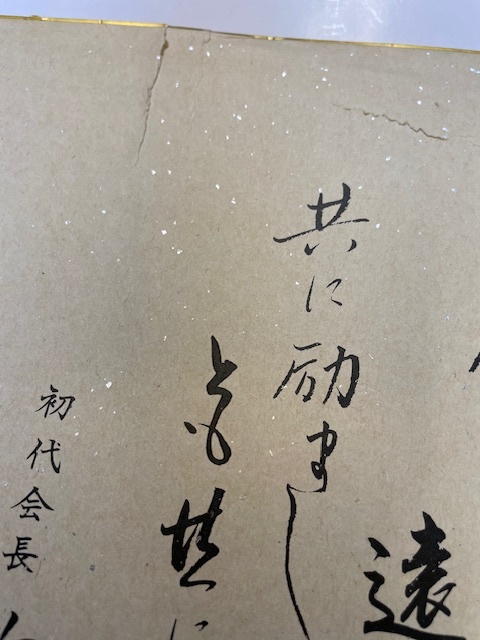 遠
共に励まし
とも
初代会長